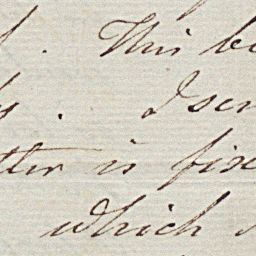 . This be
. I sen
tter is fixe
which